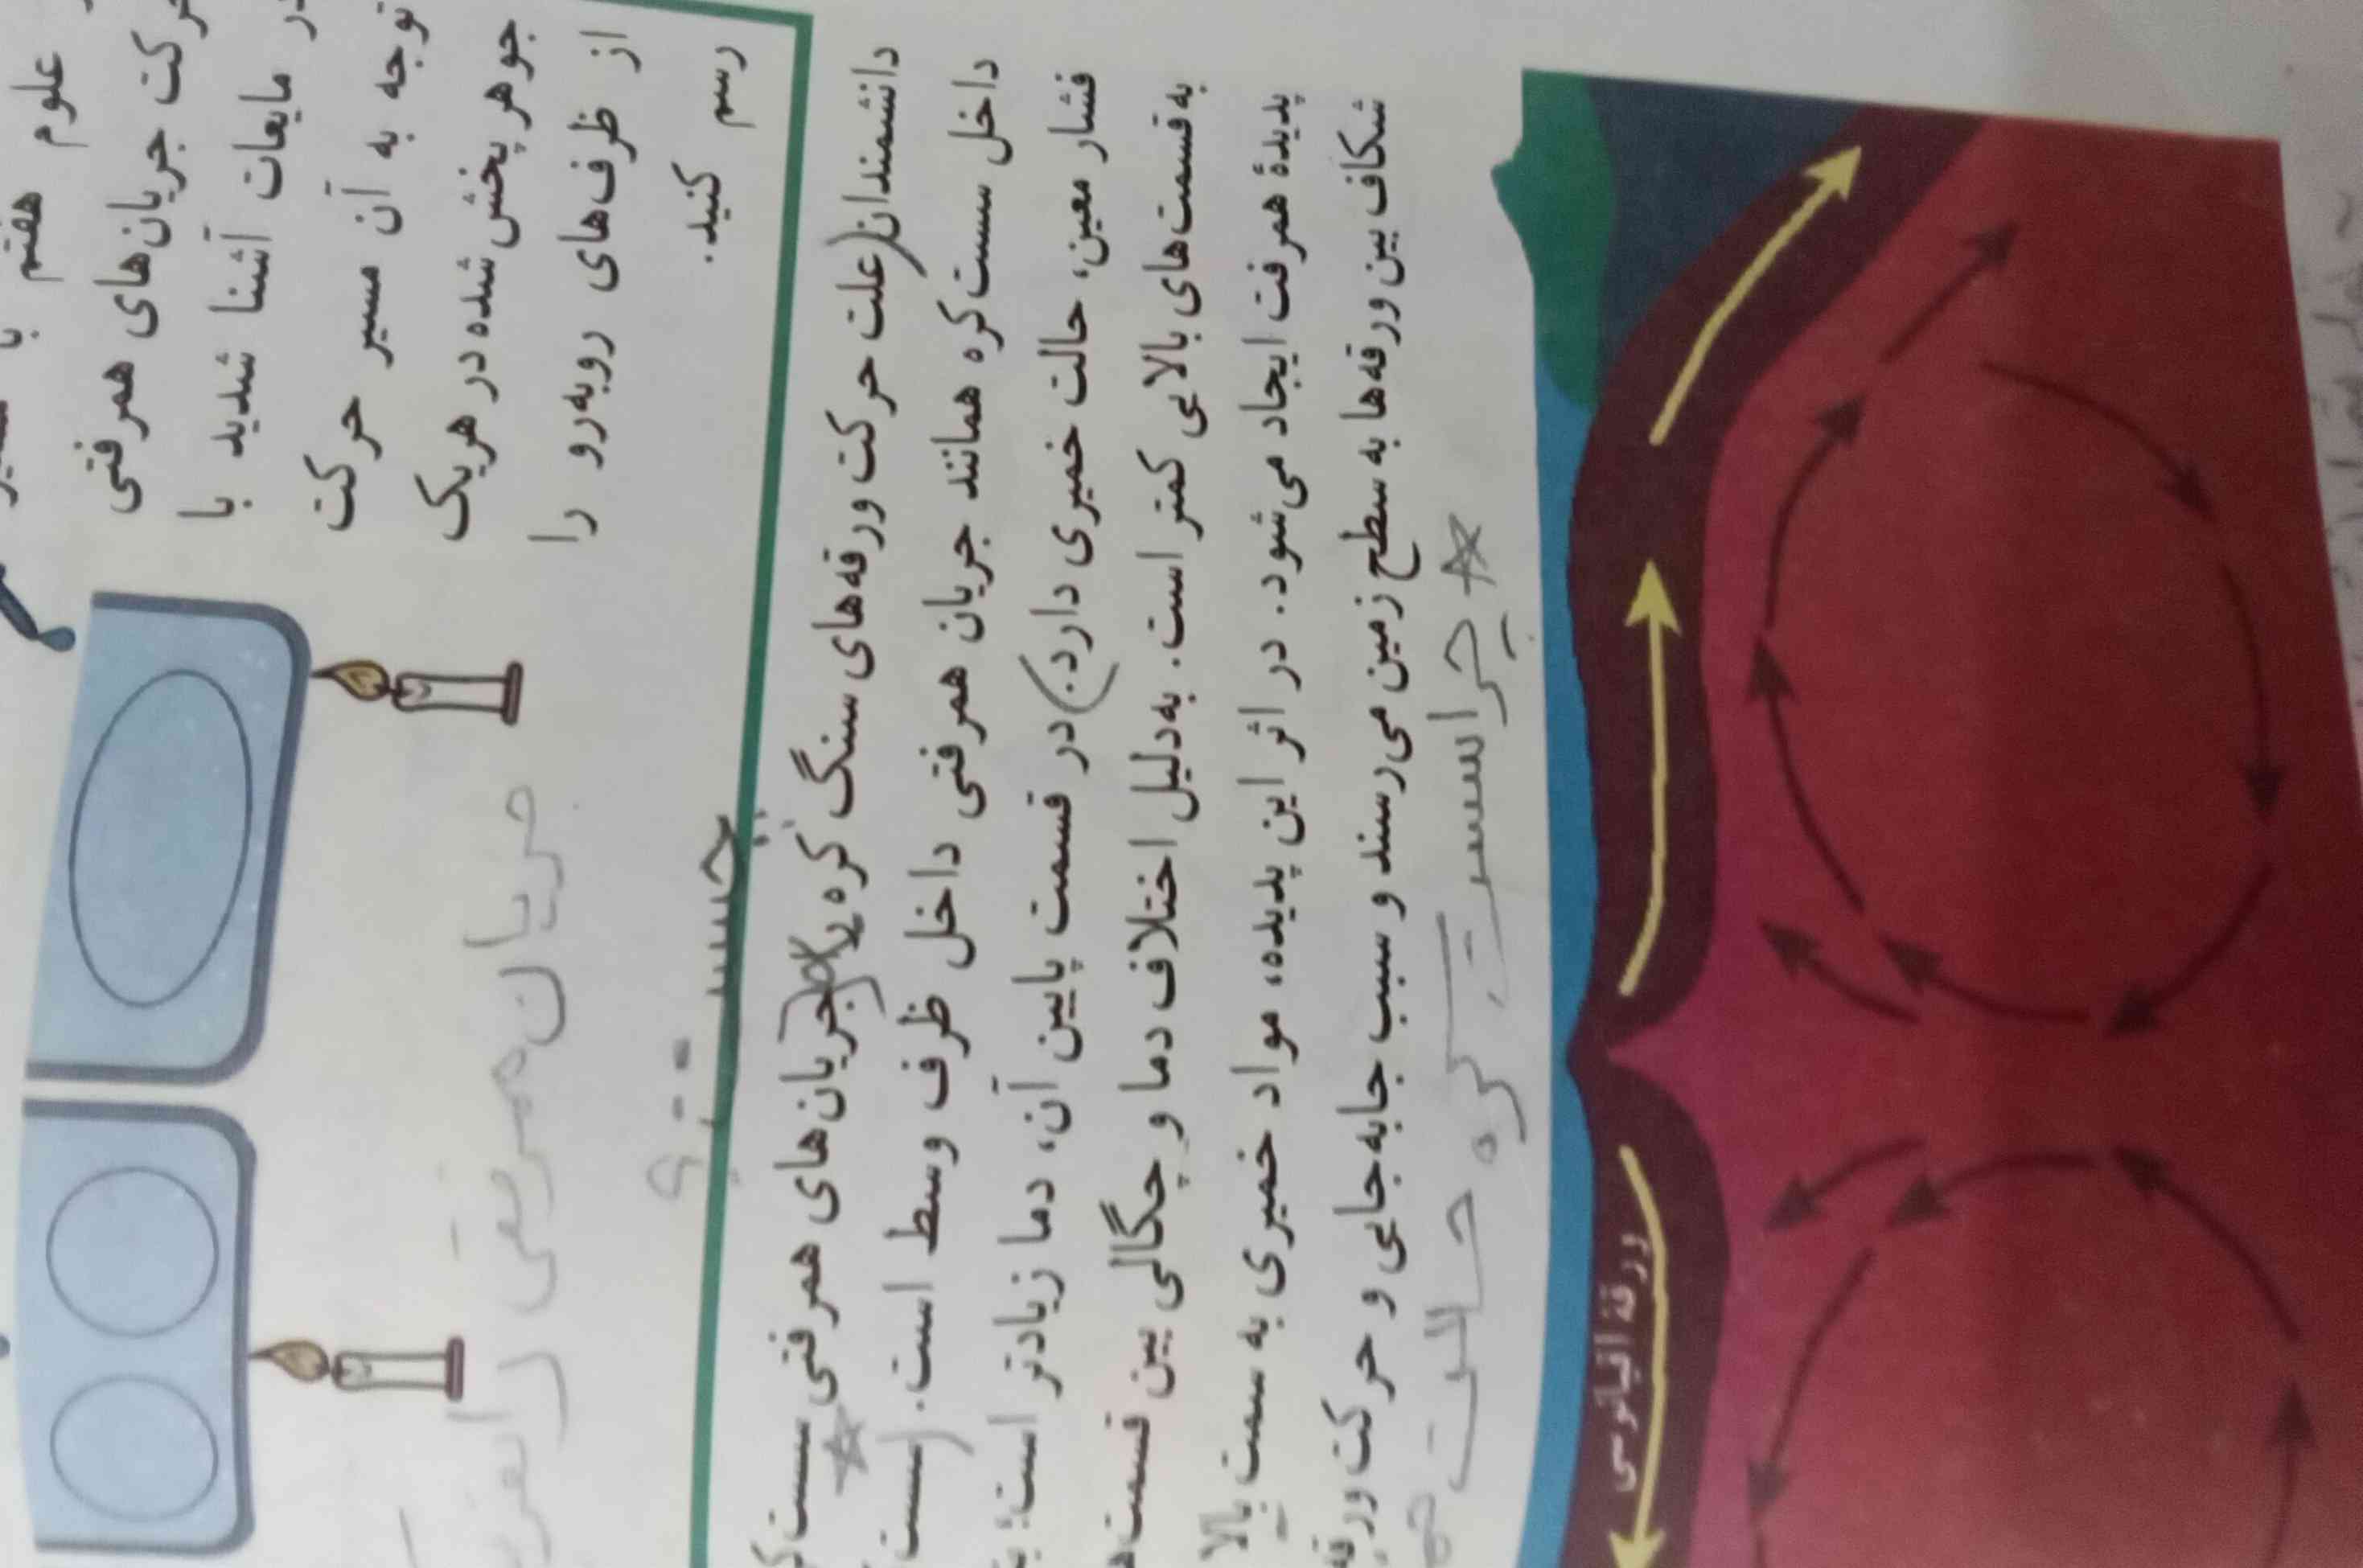 علوم هفتم با
حرکت جریان‌های همرفتی
در مایعات آشنا شدید با
توجه به آن مسیر حرکت
جوهر پخش شده در هریک
از ظرف‌های روبه‌رو را
رسم کنید.
جریان همرفتی را
چیست؟
دانشمندان علت حرکت ورقه‌های سنگ کره را جریان‌های همرفتی سست
داخل سست‌کره همانند جریان همرفتی داخل ظرف وسط است. سست
فشار معین، حالت خمیری دارد. در قسمت پایین آن، دما زیادتر است؛
به قسمت‌های بالایی کمتر است. به‌دلیل اختلاف دما و چگالی بین قسمت
پدیدهٔ همرفت ایجاد می‌شود. در اثر این پدیده، مواد خمیری به سمت بالا
شکاف بین ورقه‌ها به سطح زمین می‌رسند و سبب جابه‌جایی و حرکت ورقه
چرا سست کره حالت
ورقهٔ اقیانوسی